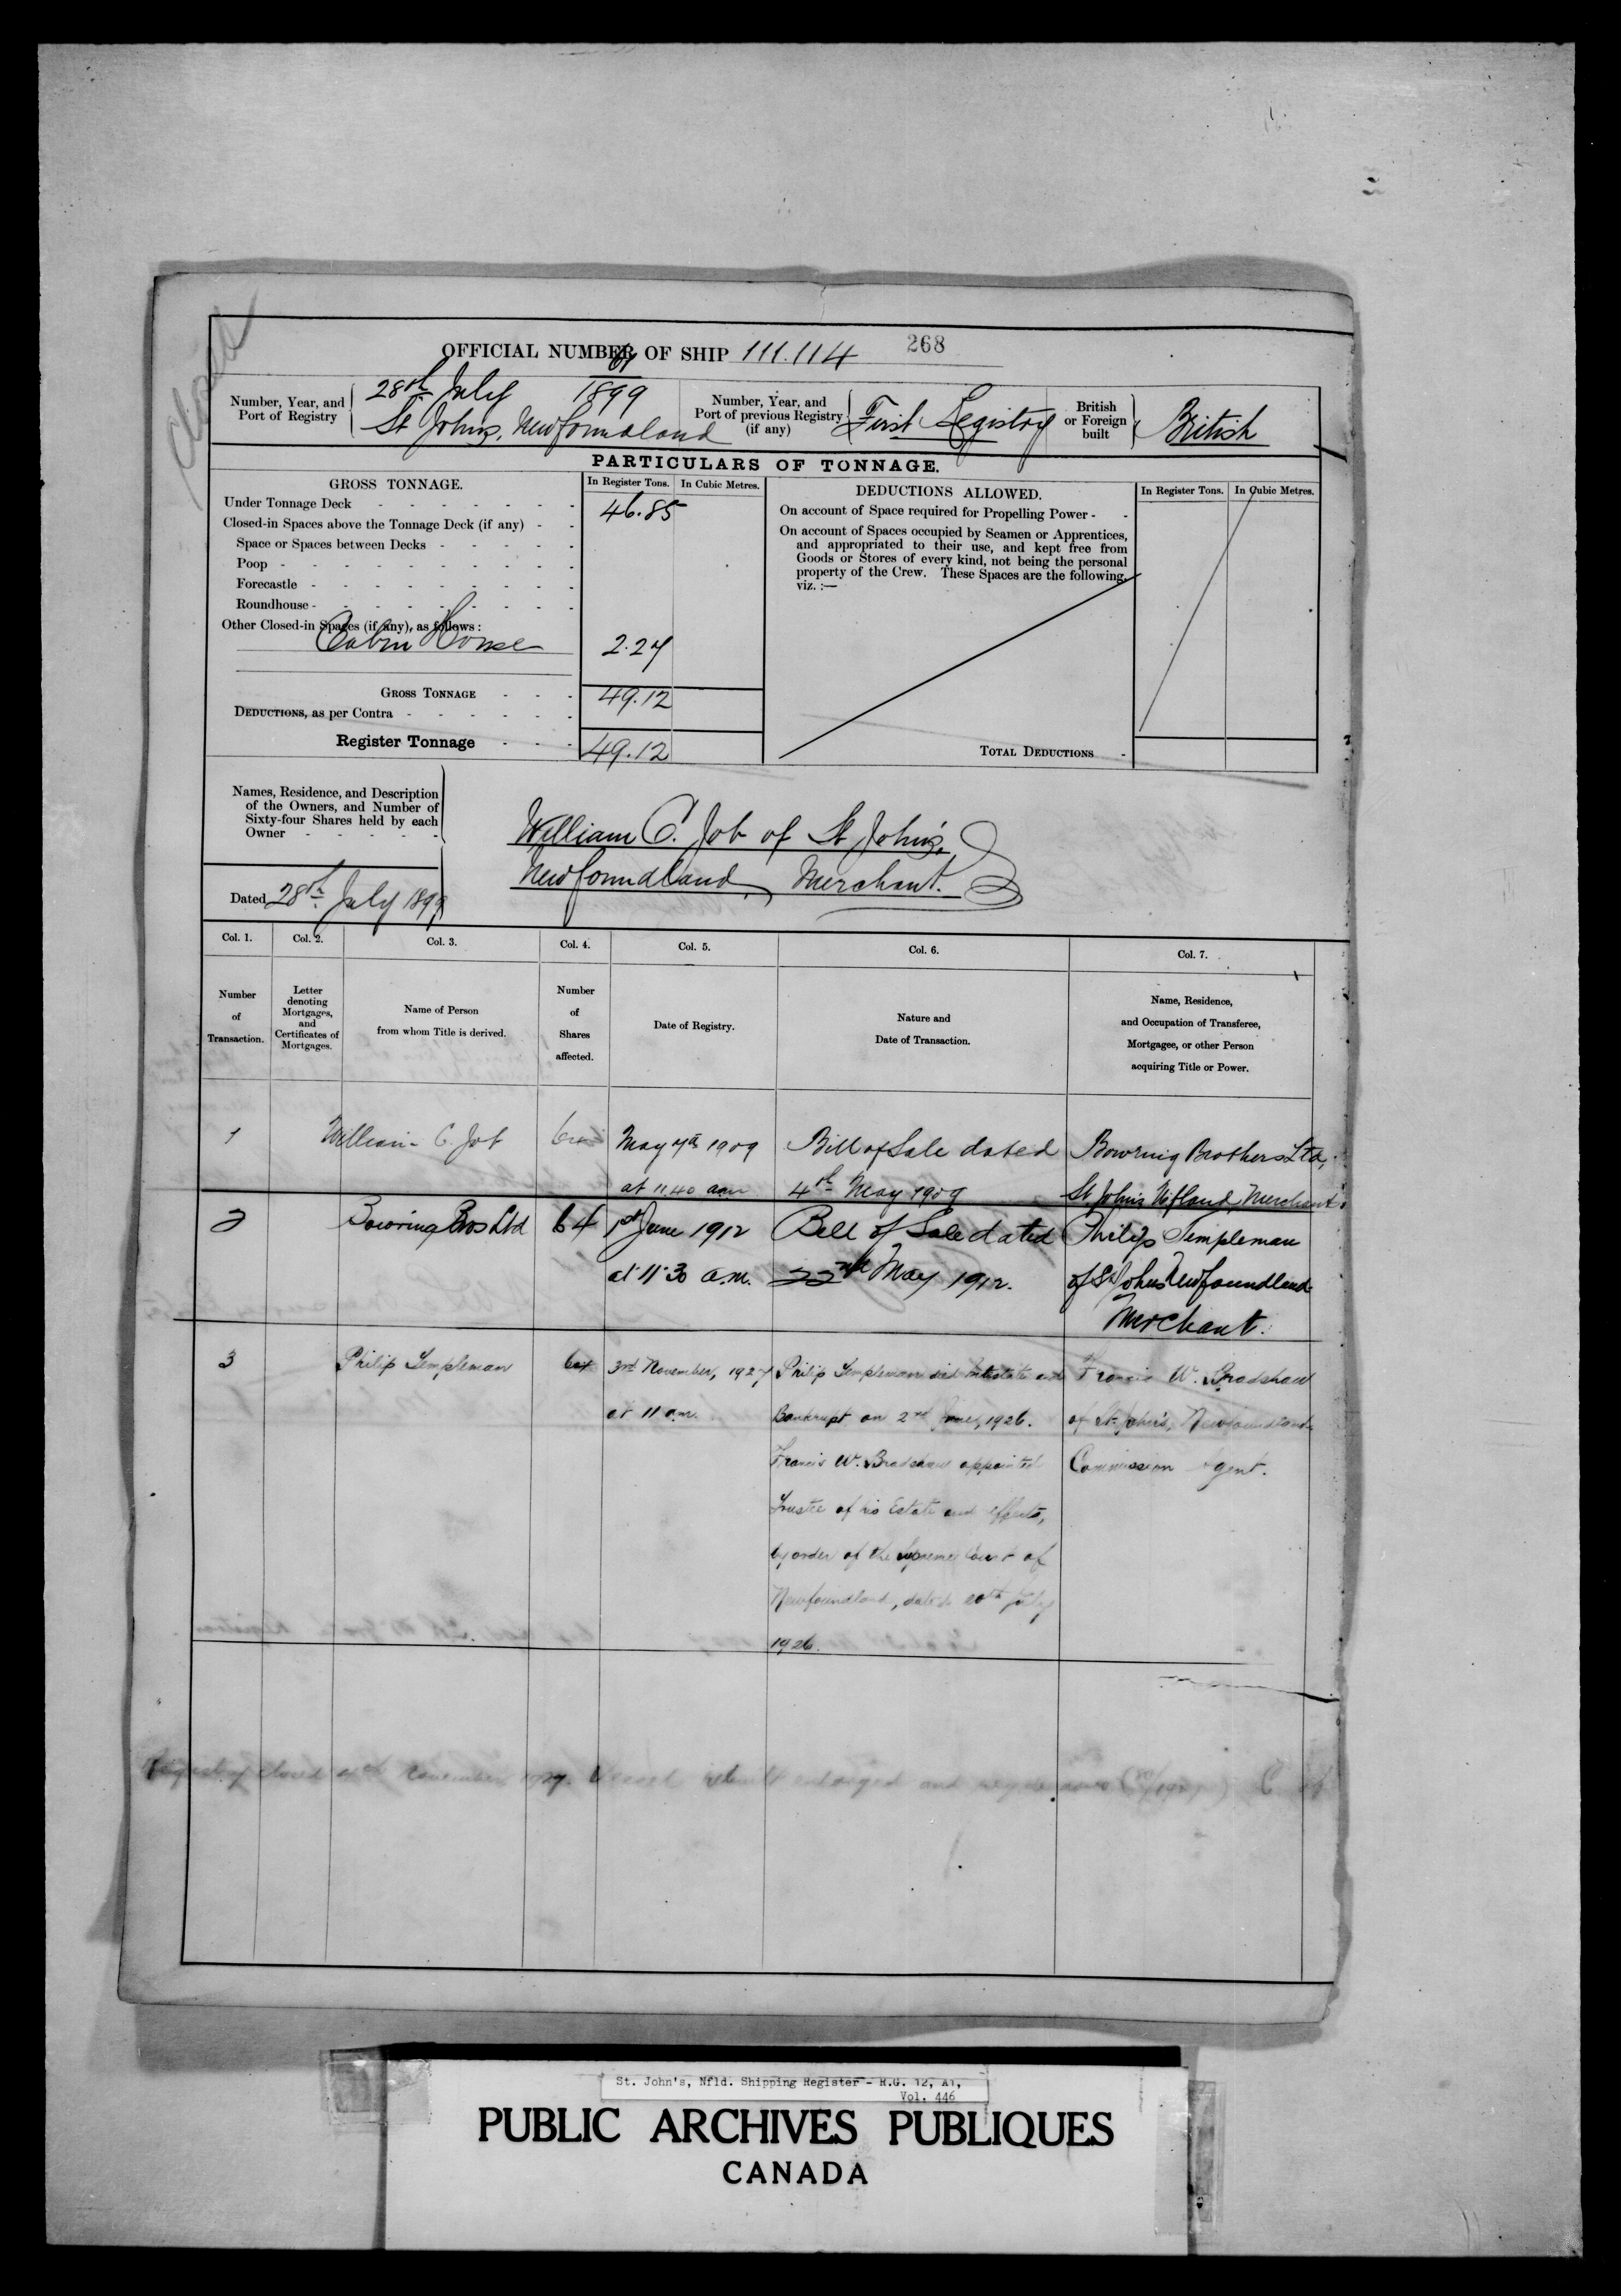 Closed
OFFICIAL NUMBER OF SHIP 111.114 268
Number, Year, and Port of Registry 28th July 1899
St Johns, Newfoundland
Number, Year, and Port of previous Registry (if any) First Registry
British or Foreign built British
PARTICULARS OF TONNAGE.
GROSS TONNAGE. In Register Tons. In Cubic Metres.
Under Tonnage Deck 46.85
Closed-in Spaces above the Tonnage Deck (if any)
Space or Spaces between Decks
Poop
Forecastle
Roundhouse
Other Closed-in Spaces (if any), as follows:
Cabin House 2.27
GROSS TONNAGE 49.12
DEDUCTIONS, as per Contra
Register Tonnage 49.12
DEDUCTIONS ALLOWED. In Register Tons. In Cubic Metres.
On account of Space required for Propelling Power
On account of Spaces occupied by Seamen or Apprentices,
and appropriated to their use, and kept free from
Goods or Stores of every kind, not being the personal
property of the Crew. These Spaces are the following,
viz. :—
TOTAL DEDUCTIONS
Names, Residence, and Description
of the Owners, and Number of
Sixty-four Shares held by each
Owner
William C. Job of St John's,
Newfoundland, Merchant.
Dated 28th July 1899
Col. 1. Col. 2. Col. 3. Col. 4. Col. 5. Col. 6. Col. 7.
Number of Transaction.
Letter denoting Mortgages, and Certificates of Mortgages.
Name of Person from whom Title is derived.
Number of Shares affected.
Date of Registry.
Nature and Date of Transaction.
Name, Residence, and Occupation of Transferee, Mortgagee, or other Person acquiring Title or Power.
1 William C. Job 64 May 7th 1909 Bill of Sale dated Bowring Brothers Ltd,
at 11.40 am 4th May 1909 St. John's Nfland, Merchants
2 Bowring Bros Ltd 64 1st June 1912 Bill of Sale dated Philip Templeman
at 11.30 a.m. 22nd May 1912. of St Johns Newfoundland
Merchant.
3 Philip Templeman 64 3rd November, 1927 Philip Templeman died Intestate and Francis W. Bradshaw
at 11 a.m. Bankrupt on 2nd 1926. of St. John's, Newfoundland
Francis W. Bradshaw appointed Commission Agent.
Trustee of his Estate and effects,
by order of the Supreme Court of
Newfoundland, dated 20th July
1926.
Registry closed November 1927. Vessel rebuilt enlarged and
St. John's, Nfld. Shipping Register - R.G. 12, A1,
Vol. 446
PUBLIC ARCHIVES PUBLIQUES
CANADA